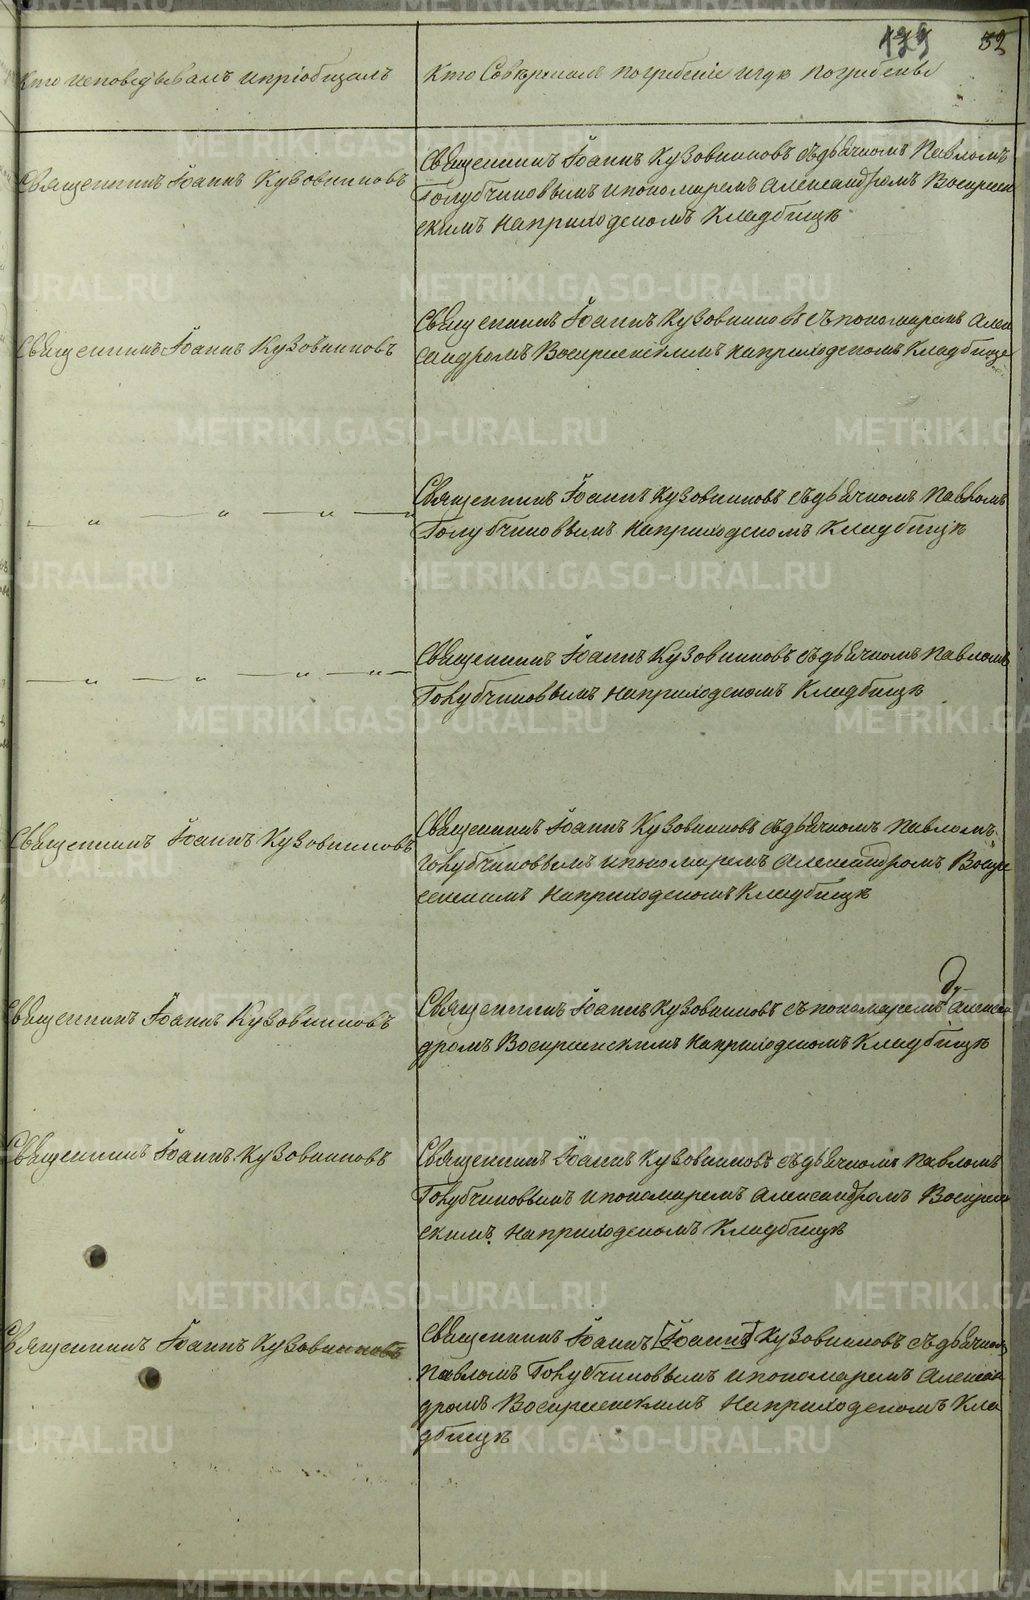 179 52
Кто исповѣдывалъ и пріобщалъ
Кто Совершалъ погребеніе и гдѣ погребены
Священникъ Іоаннъ Кузовниковъ
Священникъ Іоаннъ Кузовниковъ съ дьячкомъ Павломъ
Голубчиковымъ и пономаремъ Александромъ Воскресен
скимъ на приходскомъ Кладбищѣ
Священникъ Іоаннъ Кузовниковъ
Священникъ Іоаннъ Кузовниковъ съ пономаремъ Алек
сандромъ Воскресенскимъ на приходскомъ Кладбище
— „ — „ — „ — „
Священникъ Іоаннъ Кузовниковъ съ дьячкомъ Павломъ
Голубчиковымъ на приходскомъ Кладбищѣ
— „ — „ — „ — „ —
Священникъ Іоаннъ Кузовниковъ съ дьячкомъ Павломъ
Голубчиковымъ на приходскомъ Кладбищѣ
Священникъ Іоаннъ Кузовниковъ
Священникъ Іоаннъ Кузовниковъ съ дьячкомъ Павломъ
Голубчиковымъ и пономаремъ Александромъ Воскре
сенскимъ на приходскомъ Кладбищѣ
Священникъ Іоаннъ Кузовниковъ
Священникъ Іоаннъ Кузовниковъ съ пономаремъ Алексан
дромъ Воскресенскимъ на приходскомъ Кладбищѣ
Священникъ Іоаннъ Кузовниковъ
Священникъ Іоаннъ Кузовниковъ съ дьячкомъ Павломъ
Голубчиковымъ и пономаремъ Александромъ Воскресен
скимъ на приходскомъ Кладбищѣ
Священникъ Іоаннъ Кузовниковъ
Священникъ Іоаннъ [Іоаннъ] Кузовниковъ съ дьячкомъ
Павломъ Голубчиковымъ и пономаремъ Алексан
дромъ Воскресенскимъ на приходскомъ Кла
дбищѣ
METRIKI.GASO-URAL.RU